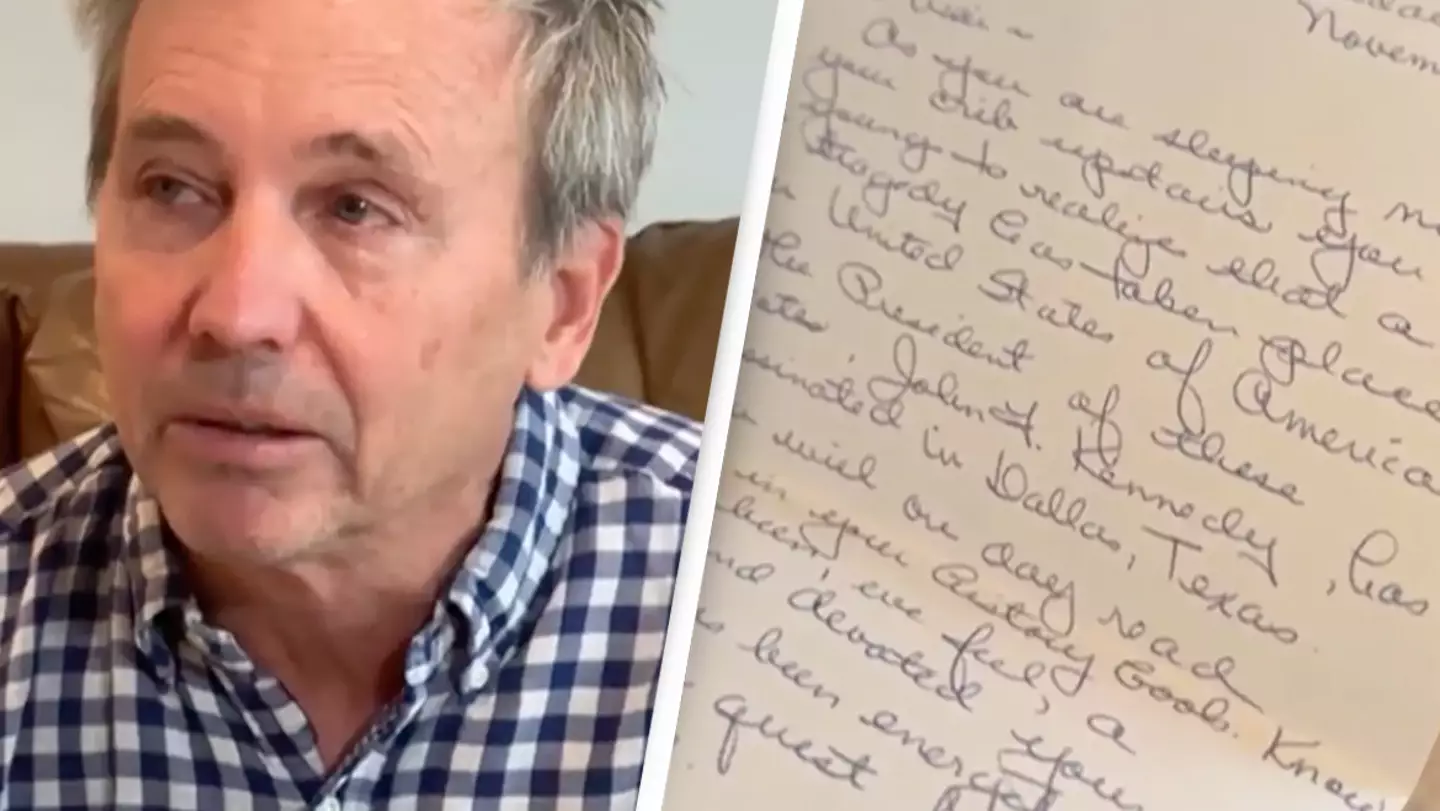 Novem
As you are sleeping
your crib upstairs you
young to realize that a
tragedy has taken place
United States of America
the President of these
John F. Kennedy, has
ssinated in Dallas, Texas.
will one day read
in your history book. Know
been, we feel, a
nd devoted, you
been energ
quest